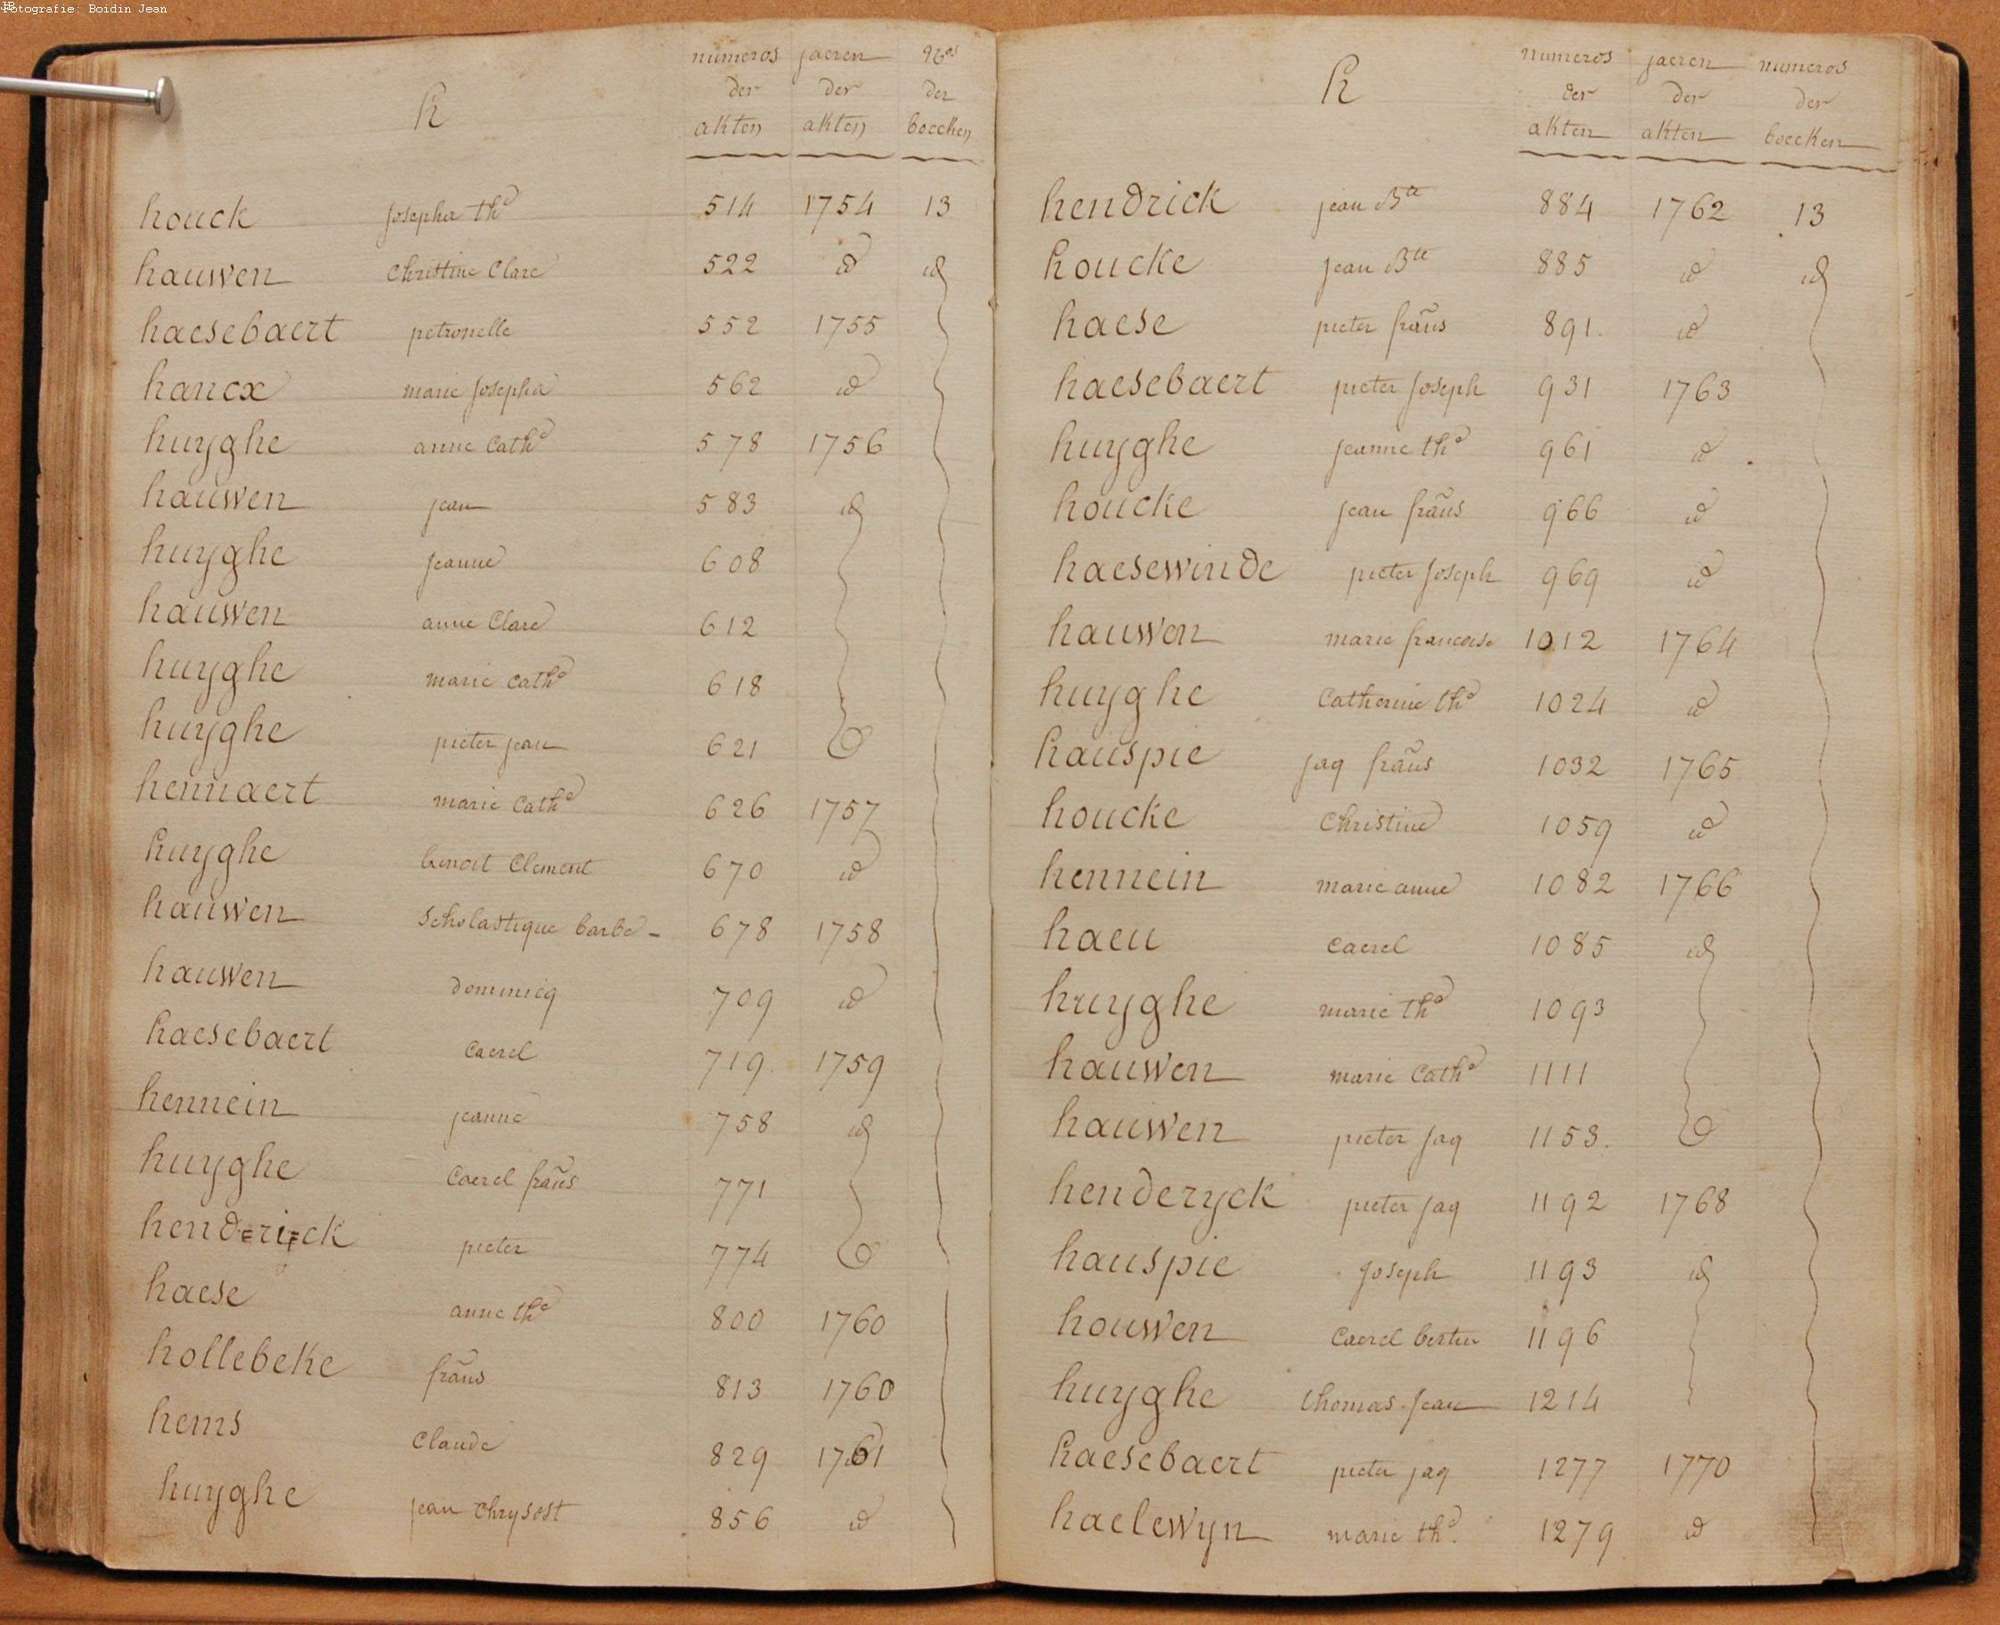 Fotografie: Boidin Jean
h
numeros jaeren nos
der der der
akten akten boecken
houck josepha the 514 1754 13
hauwen Christine Clare 522 id id
haesebaert petronelle 552 1755
hancx marie josepha 562 id
huyghe anne Cathe 578 1756
hauwen jean 583 id
huyghe jeanne 608
hauwen anne Clare 612
huyghe marie cathe 618
huyghe pieter jean 621
hennaert marie Cathe 626 1757
huyghe benoit Clement 670 id
hauwen Scholastique barbe - 678 1758
hauwen dominicq 709 id
haesebaert Caerel 719 1759
hennein jeanne 758 id
huyghe Caerel frañs 771
henderick pieter 774
haese anne the 800 1760
hollebeke frañs 813 1760
hems Claude 829 1761
huyghe jean Chrysost 856 id
h
numeros jaeren numeros
der der der
akten akten boecken
hendrick jean Bte 884 1762 13
houcke jean Bte 885 id id
haese pieter frañs 891. id
haesebaert pieter joseph 931 1763
huyghe jeanne the 961 id
houcke jean frañs 966 id
haesewinde pieter joseph 969 id
hauwen marie francoise 1012 1764
huyghe Catherine the 1024 id
hauspie jaq frañs 1032 1765
houcke Christine 1059 id
hennein marie anne 1082 1766
haeu caerel 1085 id
huyghe marie the 1093
hauwen marie Cathe 1111
hauwen pieter jaq 1153.
henderyck pieter jaq 1192 1768
hauspie joseph 1193 id
houwen Caerel bertin 1196
huyghe thomas jean 1214
haesebaert pieter jaq 1277 1770
haelewyn marie the. 1279 id